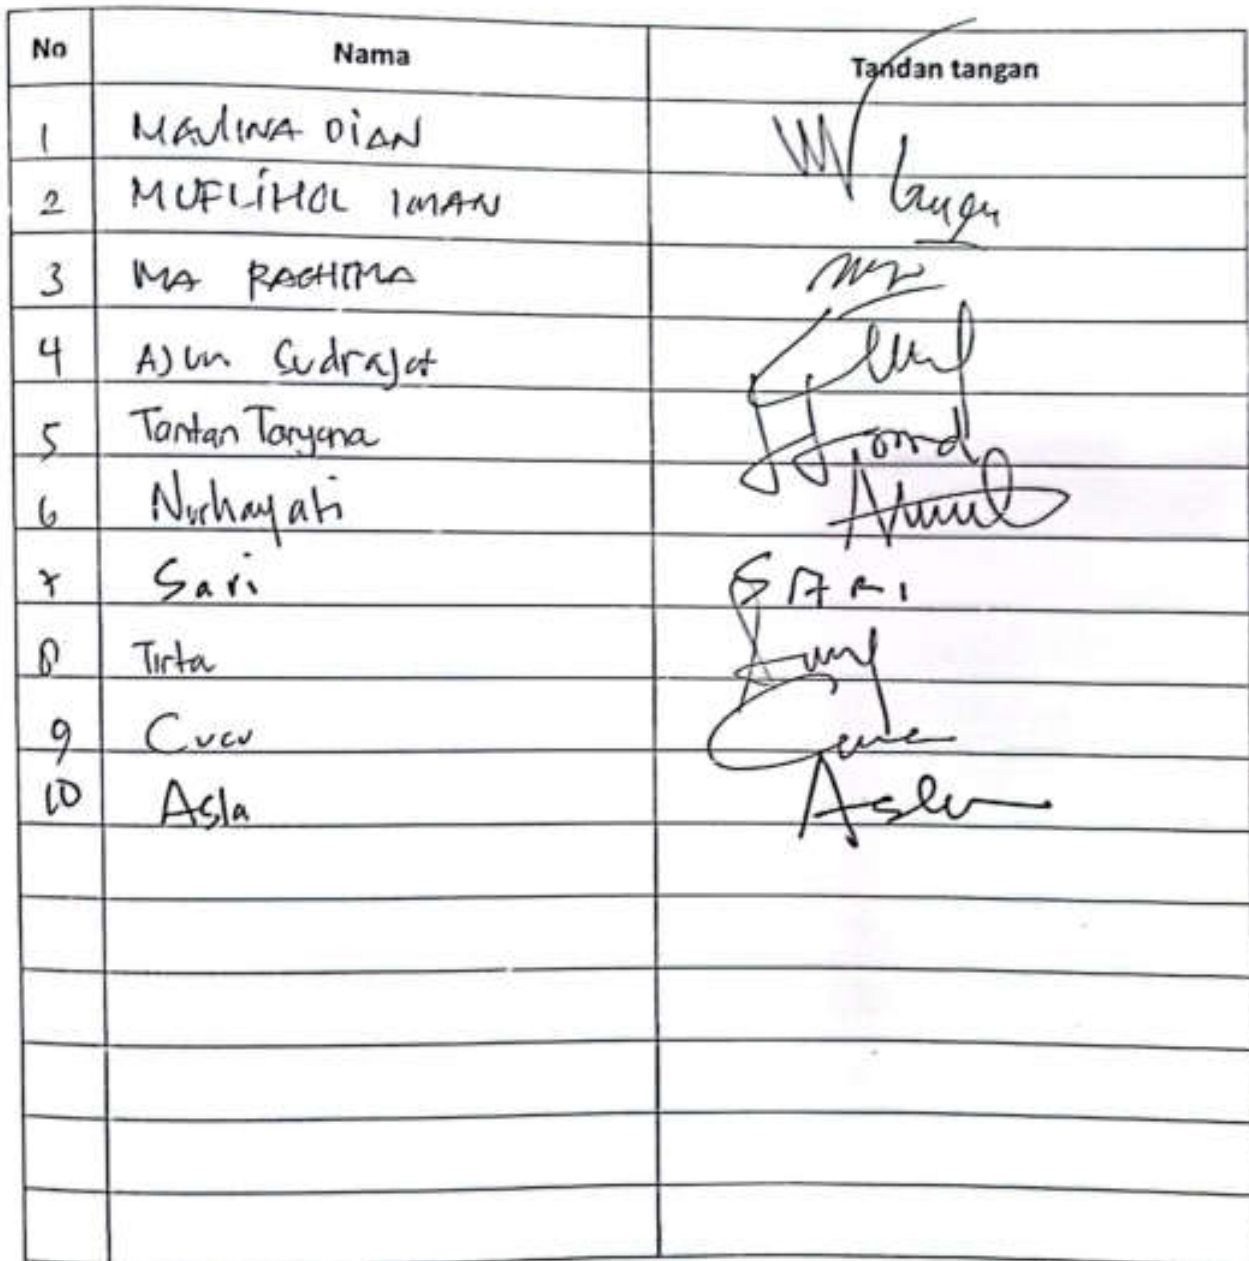 No Nama Tandan tangan
1 MAULINA DIAN
2 MUFLIHOL IMAN
3 MA RACHIMA
4 Ajun Sudrajat
5 Tantan Taryana
6 Nurhayati
7 Sari SARI
8 Tirta
9 Cucu
10 Asla Asla